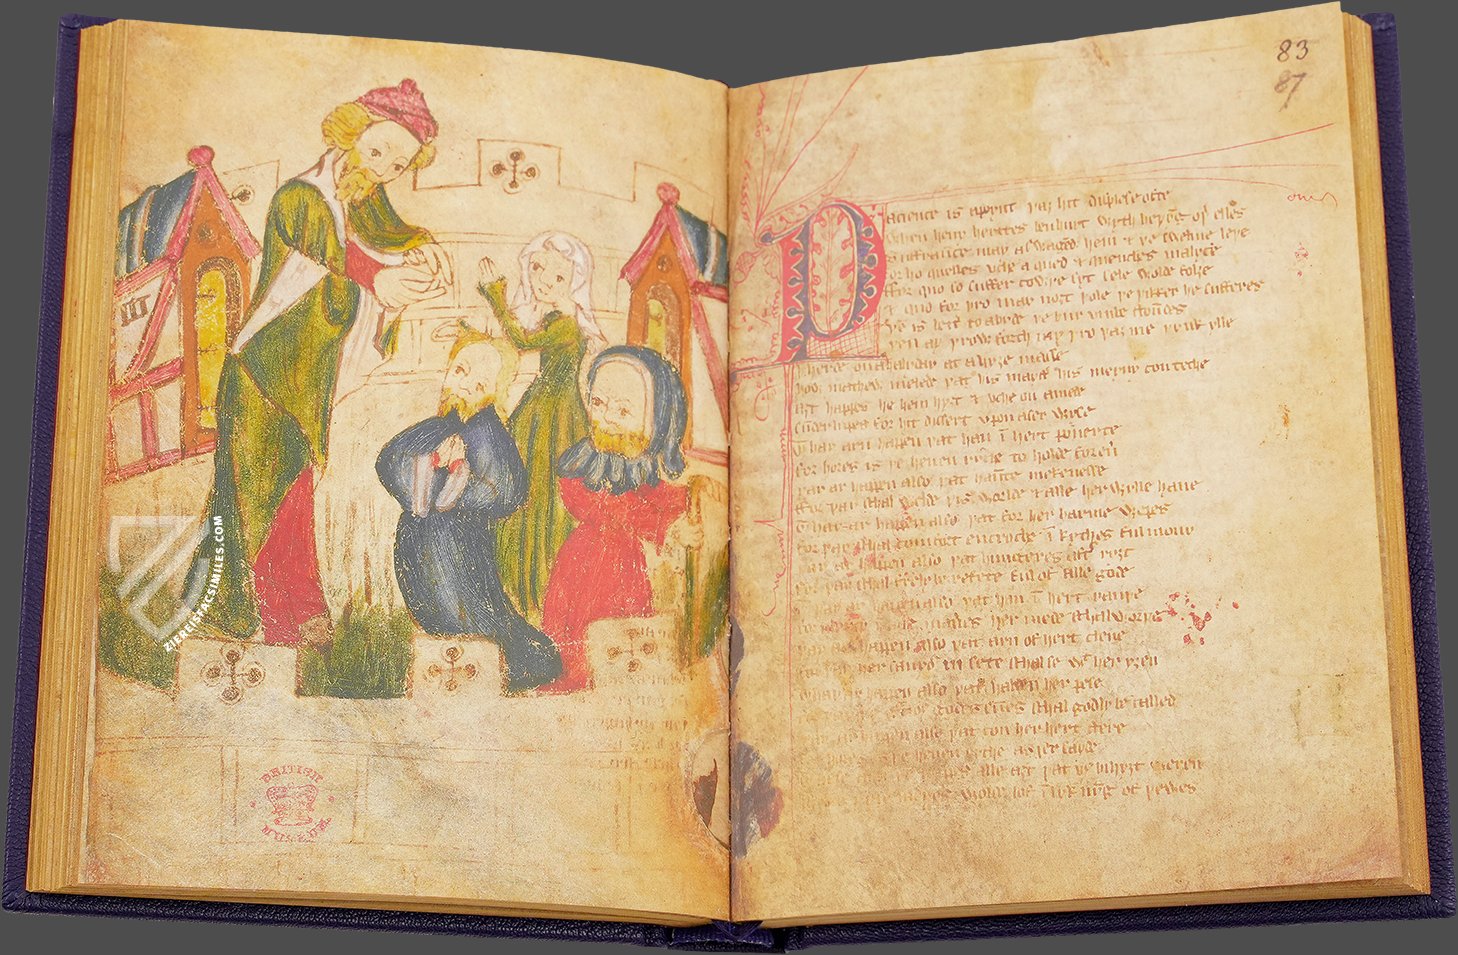 ZIERELSFACSIMILES.COM
BRITISH MUSEUM
83
87
Pacience is apoynt þaȝ hit displese ofte
When heuy herttes ben hurt wyth heþyng oþer elles
Suffraunce may aswagen hem & þe swelme leþe
For ho quelles vche a qued & quenches malyce
For quo so suffer cowþe syt sele wolde folȝe
& quo for þro may noȝt þole þe þikker he sufferes
to abyde þe bur
þen ay þrow forth my þro þaȝ me þynk ylle
I herde on ahalyday at a hyȝe masse
how mathew melede þat his mayst his meyny con teche
aȝt happes he hem hyȝt & vche on a mede
sunderlupes for hit dissert vpon aser wyse
Thay arn happen þat han ī hert pouerte
for hores is þe heuen ryche to holde for eu
þay ar happen also þat haūte mekenesse
for þay schal welde þis worlde & alle her wylle haue
Thay ar happen also þat for her harme wepes
for þay schal comfort encroche ī kythes ful mony
þay ar happen also þat hungeres aft ryȝt
for þay schal frely be refete ful of alle gode
Thay ar happen also þat han ī hert rauþe
her mede schal worþe
þay ar happen also þat arn of hert clene
her sauyo in sete schal se wt her yȝen
Thay ar happen also þat halden her pese
godes sunes schal godly be called
þat con her hert stere
heuen ryche as I er sayde
alle aȝt þat vus bihyȝt weren
wolde lof ī lyknyng of þewes